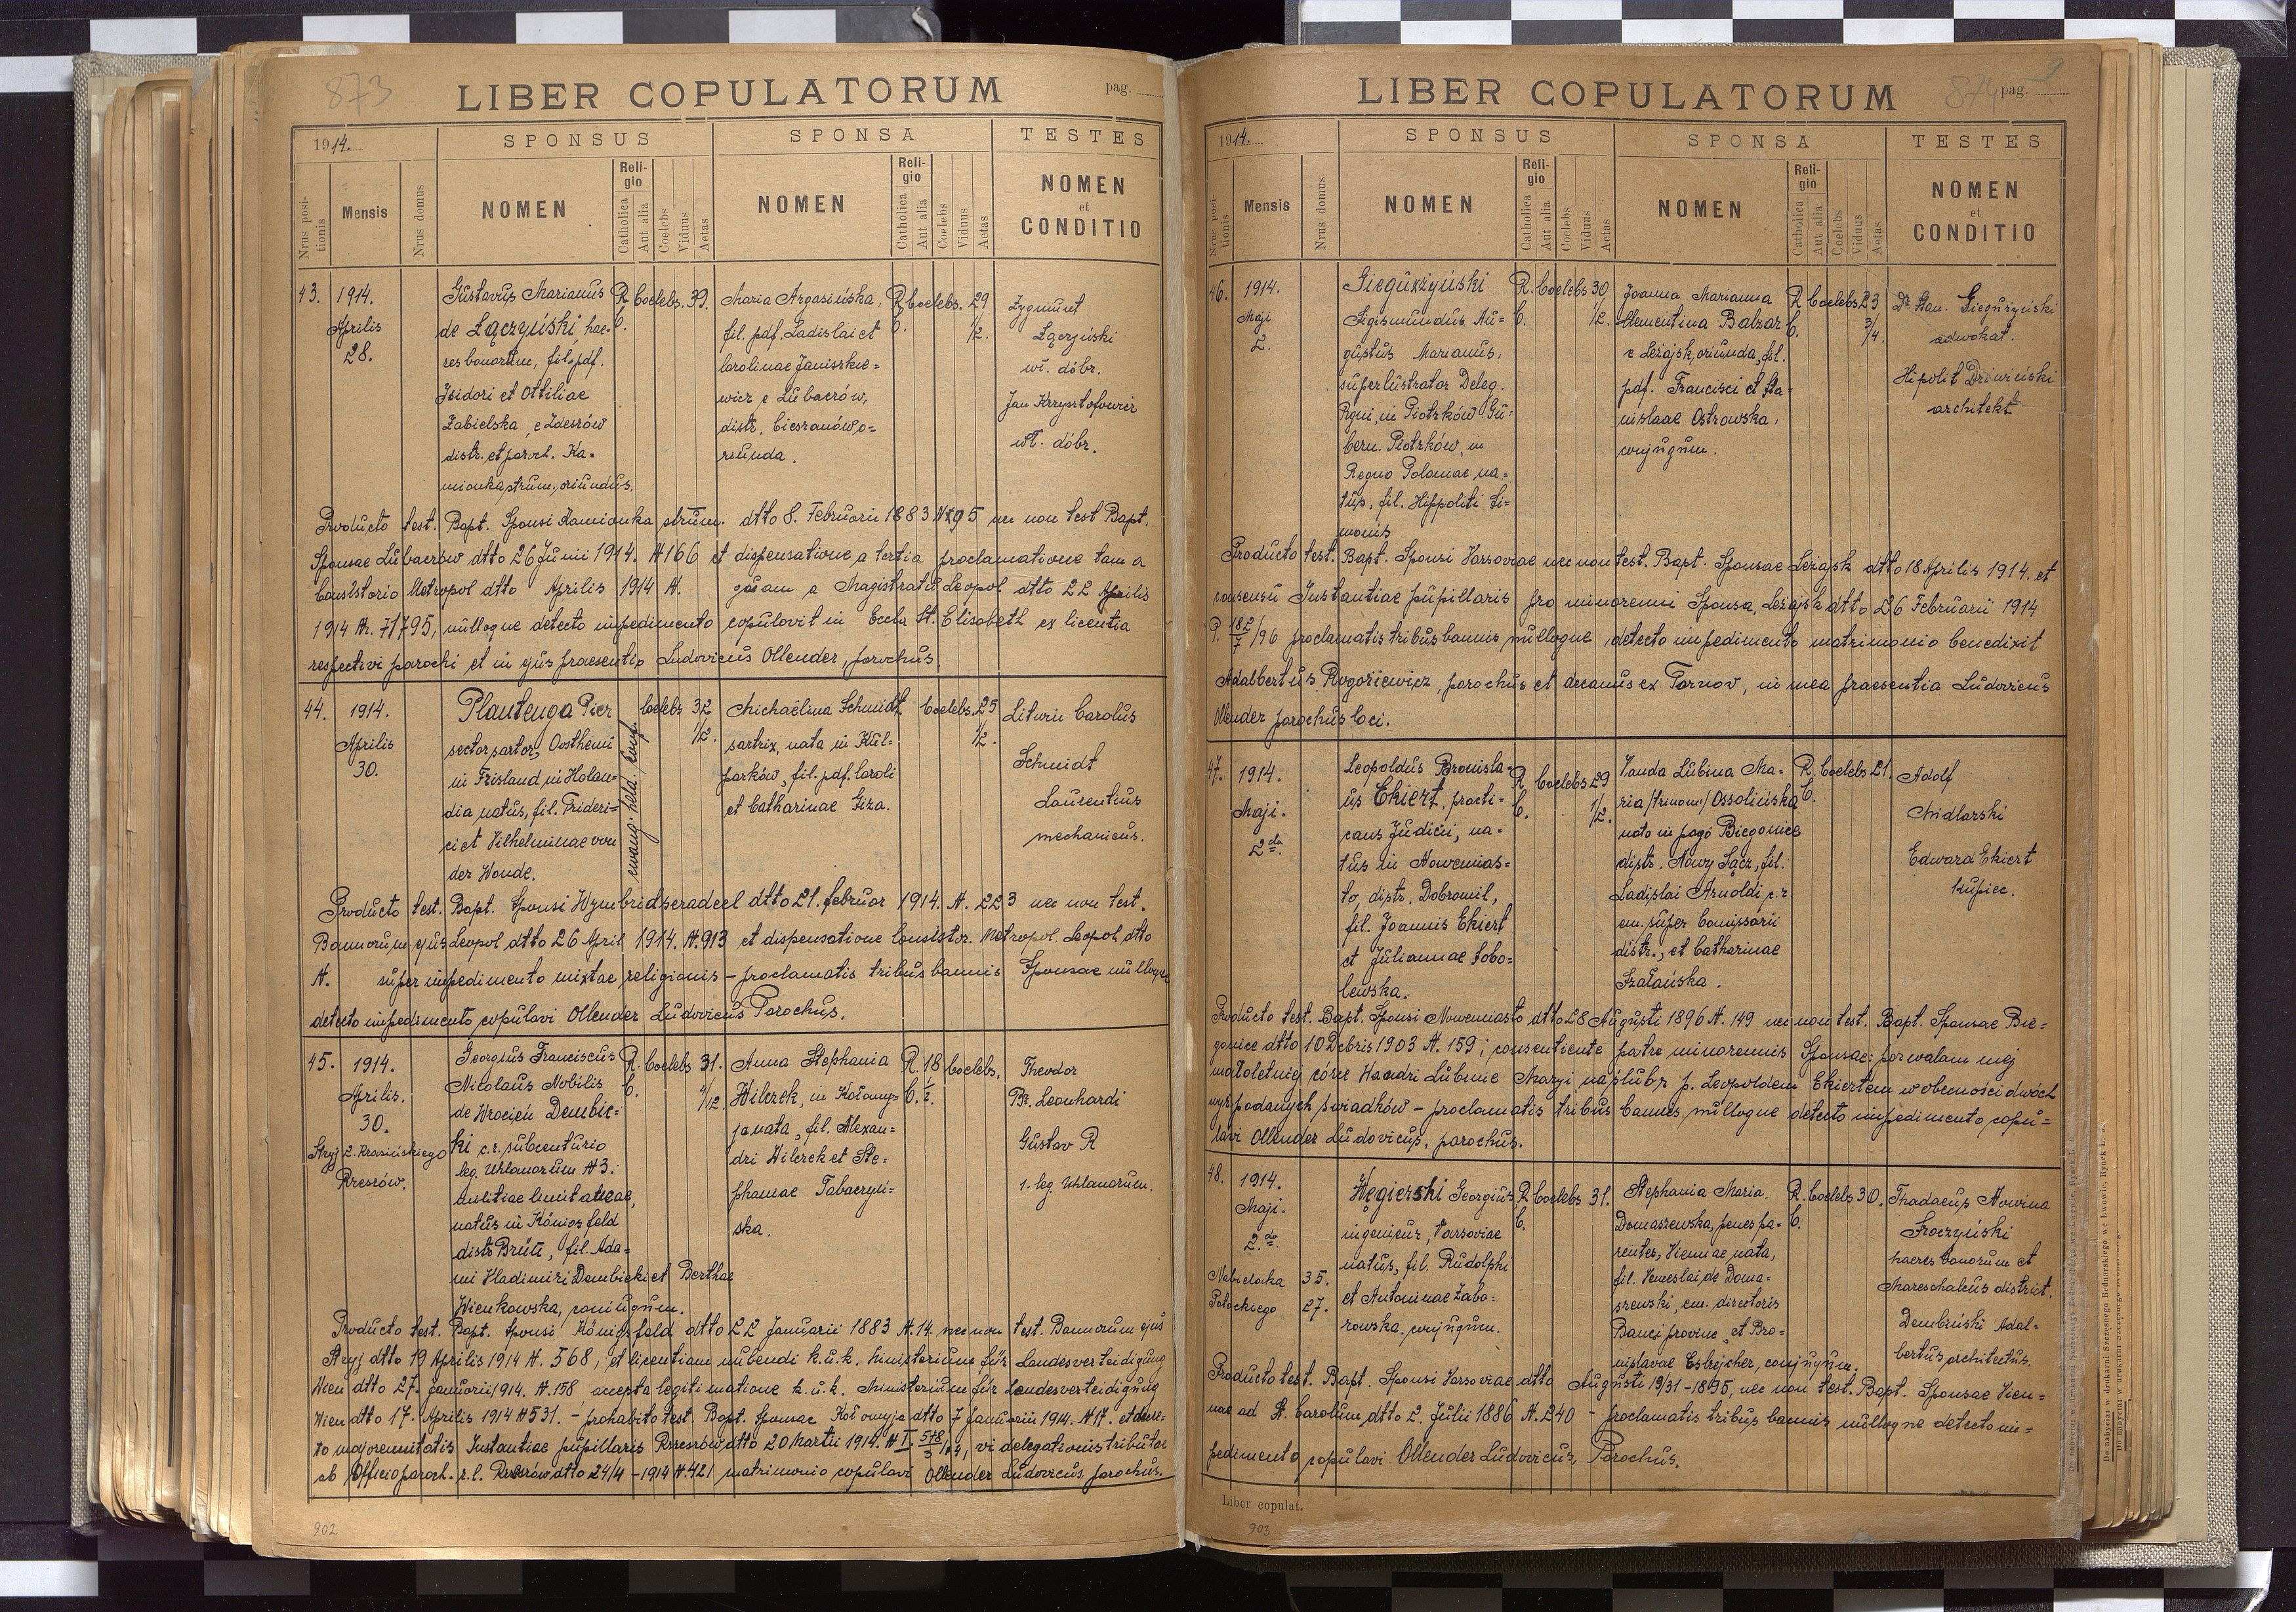 873
LIBER COPULATORUM
pag.
1914.
SPONSUS
SPONSA
TESTES
Nrus positionis
Mensis
Nrus domus
NOMEN
Religio
Catholica
Aut alia
Coelebs
Viduus
Aetas
NOMEN
Religio
Catholica
Aut alia
Coelebs
Viduus
Aetas
NOMEN
et
CONDITIO
43.
1914.
Aprilis
28.
Gustavus Marianus
de Łączyński, hae-
res bonorum, fil. pdf.
Isidori et Ottiliae
Zabielska, e Zdesrów
distr. et paroch. Ka-
mionka strum. oriundus.
R.
C.
Coelebs.
39.
Maria Argasińska,
fil. pdf. Ladislai et
Carolinae Janiszkie-
wicz e Lubaczów,
distr. Cieszanów o-
riunda.
R.
C.
Coelebs.
29
1/2.
Zygmunt
Łączyński
wł. dóbr.
Jan Krzysztofowicz
wł. dóbr.
Producto test. Bapt. Sponsi Kamionka strum. dtto 8. Februarii 1883 N 95 nec non test Bapt.
Sponsae Lubaczów dtto 26 Junii 1914. N 166 et dispensatione a tertia proclamatione tam a
Consistorio Metropol dtto Aprilis 1914 N. quam a Magistratu Leopol dtto 22 Aprilis
1914 Nr. 71795, nulloque detecto impedimento copulavit in Eccla St. Elisabeth ex licentia
respectivi parochi et in ejus praesentia Ludovicus Ollender, parochus.
44.
1914.
Aprilis
30.
Plantenga Pier
sector sartor, Oosthem
in Frisland in Holan-
dia natus, fil. Frideri-
ci et Vilhelminae von
der Woude.
ewang. held. konf.
Coelebs
32
1/2.
Michaëlina Schmidt
sartrix, nata in Kul-
parków, fil. pdf. Caroli
et Catharinae Giza.
Coelebs.
25
1/2.
Liturii Carolus
Schmidt
Laurentius
mechanicus.
Producto test. Bapt. Sponsi Wymbridseradeel dtto 21. februar 1914. N. 223 nec non test.
Bannorum ejus Leopol dtto 26 April 1914. N. 913 et dispensatione Consistor. Metropol. Leopol. dtto
N. super impedimento mixtae religionis - proclamatis tribus bannis Sponsae nulloque
detecto impedimento copulavi Ollender Ludovicus Parochus.
45.
1914.
Aprilis.
30.
Stryj 2. Krasińskiego
Rzeszów.
Georgius Franciscus
Nicolaus Nobilis
de Wrocień Dembic-
ki c.r. subcenturio
leg. Uhlanorum N 3.
militiae limitaneae,
natus in Königsfeld
distr. Brün, fil. Ada-
mi Vladimiri Dembicki et Berthae
Wienkowska, coniugum.
R.
C.
Coelebs
31.
4/12.
Anna Stephania
Wilczek, in Kołomy-
ja nata, fil. Alexan-
dri Wilczek et Ste-
phaniae Tabaczyń-
ska.
R.
C.
18
1/2.
Coelebs.
Theodor
Br. Leonhardi
Gustav R
1. leg. Uhlanorum.
Producto test. Bapt. Sponsi Königsfeld dtto 22 Januarii 1883 N. 14. nec non test. Bannorum ejus
Stryj dtto 19 Aprilis 1914 N. 568, et licentiam nubendi k.u.k. Ministerium für Landesverteidigung
Wien dtto 27. Januarii 1914. N. 158 accepta legitimatione k.u.k. Ministerium für Landesverteidigung
Wien dtto 17. Aprilis 1914 N 531. - prohabito test. Bapt. Sponsae Kołomyja dtto 7 Januarii 1914. N 17. et decre-
to majorennitatis Instantiae pupillaris Rzeszów dtto 20 Martii 1914. N I. 578/3/14, vi delegationis tributae
ab Officio paroch. r.l. Rzeszów dtto 24/4 - 1914 N. 421 matrimonio copulavi Ollender Ludovicus parochus.
902
874
LIBER COPULATORUM
pag.
1914.
SPONSUS
SPONSA
TESTES
Nrus positionis
Mensis
Nrus domus
NOMEN
Religio
Catholica
Aut alia
Coelebs
Viduus
Aetas
NOMEN
Religio
Catholica
Aut alia
Coelebs
Viduus
Aetas
NOMEN
et
CONDITIO
46.
1914.
Maji
2.
Giegużyński
Sigismundus Au-
gustus Marianus,
superlustrator Deleg.
Regni, in Piotrków Gu-
bern. Piotrków, in
Regno Poloniae na-
tus, fil. Hippoliti Si-
monis
R.
C.
Coelebs
30
1/2.
Joanna Marianna
Clementina Balzar
e Leżajsk, oriunda, fil.
pdf. Francisci et Sta-
nislaae Ostrowska,
conjugum.
R.
C.
Coelebs
23
3/4.
Dr. Stan. Giegużyński
adwokat.
Hipolit Drewiński
architekt
Producto test. Bapt. Sponsi Varsoviae nec non test. Bapt. Sponsae Leżajsk dtto 18 Aprilis 1914. et
consensu Instantiae pupillaris pro minorenni Sponsa, Leżajsk dtto 26 Februarii 1914
P. 182/7/96 proclamatis tribus bannis nulloque detecto impedimento matrimonio benedixit
Adalbertus Rogoziewicz, parochus et decanus ex Tarnov, in mea praesentia Ludovicus
Ollender parochus loci.
47.
1914.
Maji.
2da.
Leopoldus Bronisla-
us Ekiert, practi-
cans Judicii, na-
tus in Nowemias-
to, distr. Dobromil,
fil. Joannis Ekiert
et Juliannae Sobo-
lewska.
R.
C.
Coelebs
29
1/2.
Vanda Lubina Ma-
ria /trinom/ Ossolińska
nata in pago Biegonice
distr. Nowy Sącz, fil.
Ladislai Arnoldi c.r.
em. super Comissarii
distr., et Catharinae
Szałańska.
R.
C.
Coelebs
21.
Adolf
Midlarski
Edward Ekiert
kupiec.
Producto test. Bapt. Sponsi Nowemiasto dtto 28 Augusti 1896 N. 149 nec non test. Bapt. Sponsae Bie-
gonice dtto 10 Debris 1903 N. 159; consentiente patre minorennis Sponsae: pozwalam mej
małoletniej córce Wandzi Lubinie Maryi na ślub z p. Leopoldem Ekiertem w obecności dwóch
wyż podanych świadków - proclamatis tribus bannis nulloque detecto impedimento copu-
lavi Ollender Ludovicus, parochus.
48.
1914.
Maji.
2do.
Nabielaka 35.
Potockiego 27.
Węgierski Georgius
ingenieur, Varsoviae
natus, fil. Rudolphi
et Antoninae Zabo-
rowska. conjugum.
R.
C.
Coelebs
31.
Stephania Maria
Domaszewska, penes pa-
rentes, Viennae nata,
fil. Venceslai de Doma-
szewski, em. directoris
Banci provinc. et Bro-
nislavae Estrejcher, conjugum.
R.
C.
Coelebs
30.
Thadaeus Nowina
Sroczyński
haeres bonorum et
Mareschalcus district.
Dembiński Adal-
bertus architectus.
Producto test. Bapt. Sponsi Varsoviae dtto Augusti 19/31 - 1895, nec non test. Bapt. Sponsae Vien-
nae ad St. Carolum dtto 2. Julii 1886 N. 240 - proclamatis tribus bannis nulloque detecto im-
pedimento copulavi Ollender Ludovicus, Parochus.
Liber copulat.
903
Do nabycia w drukarni Szczęsnego Bednarskiego we Lwowie, Rynek l. 9.